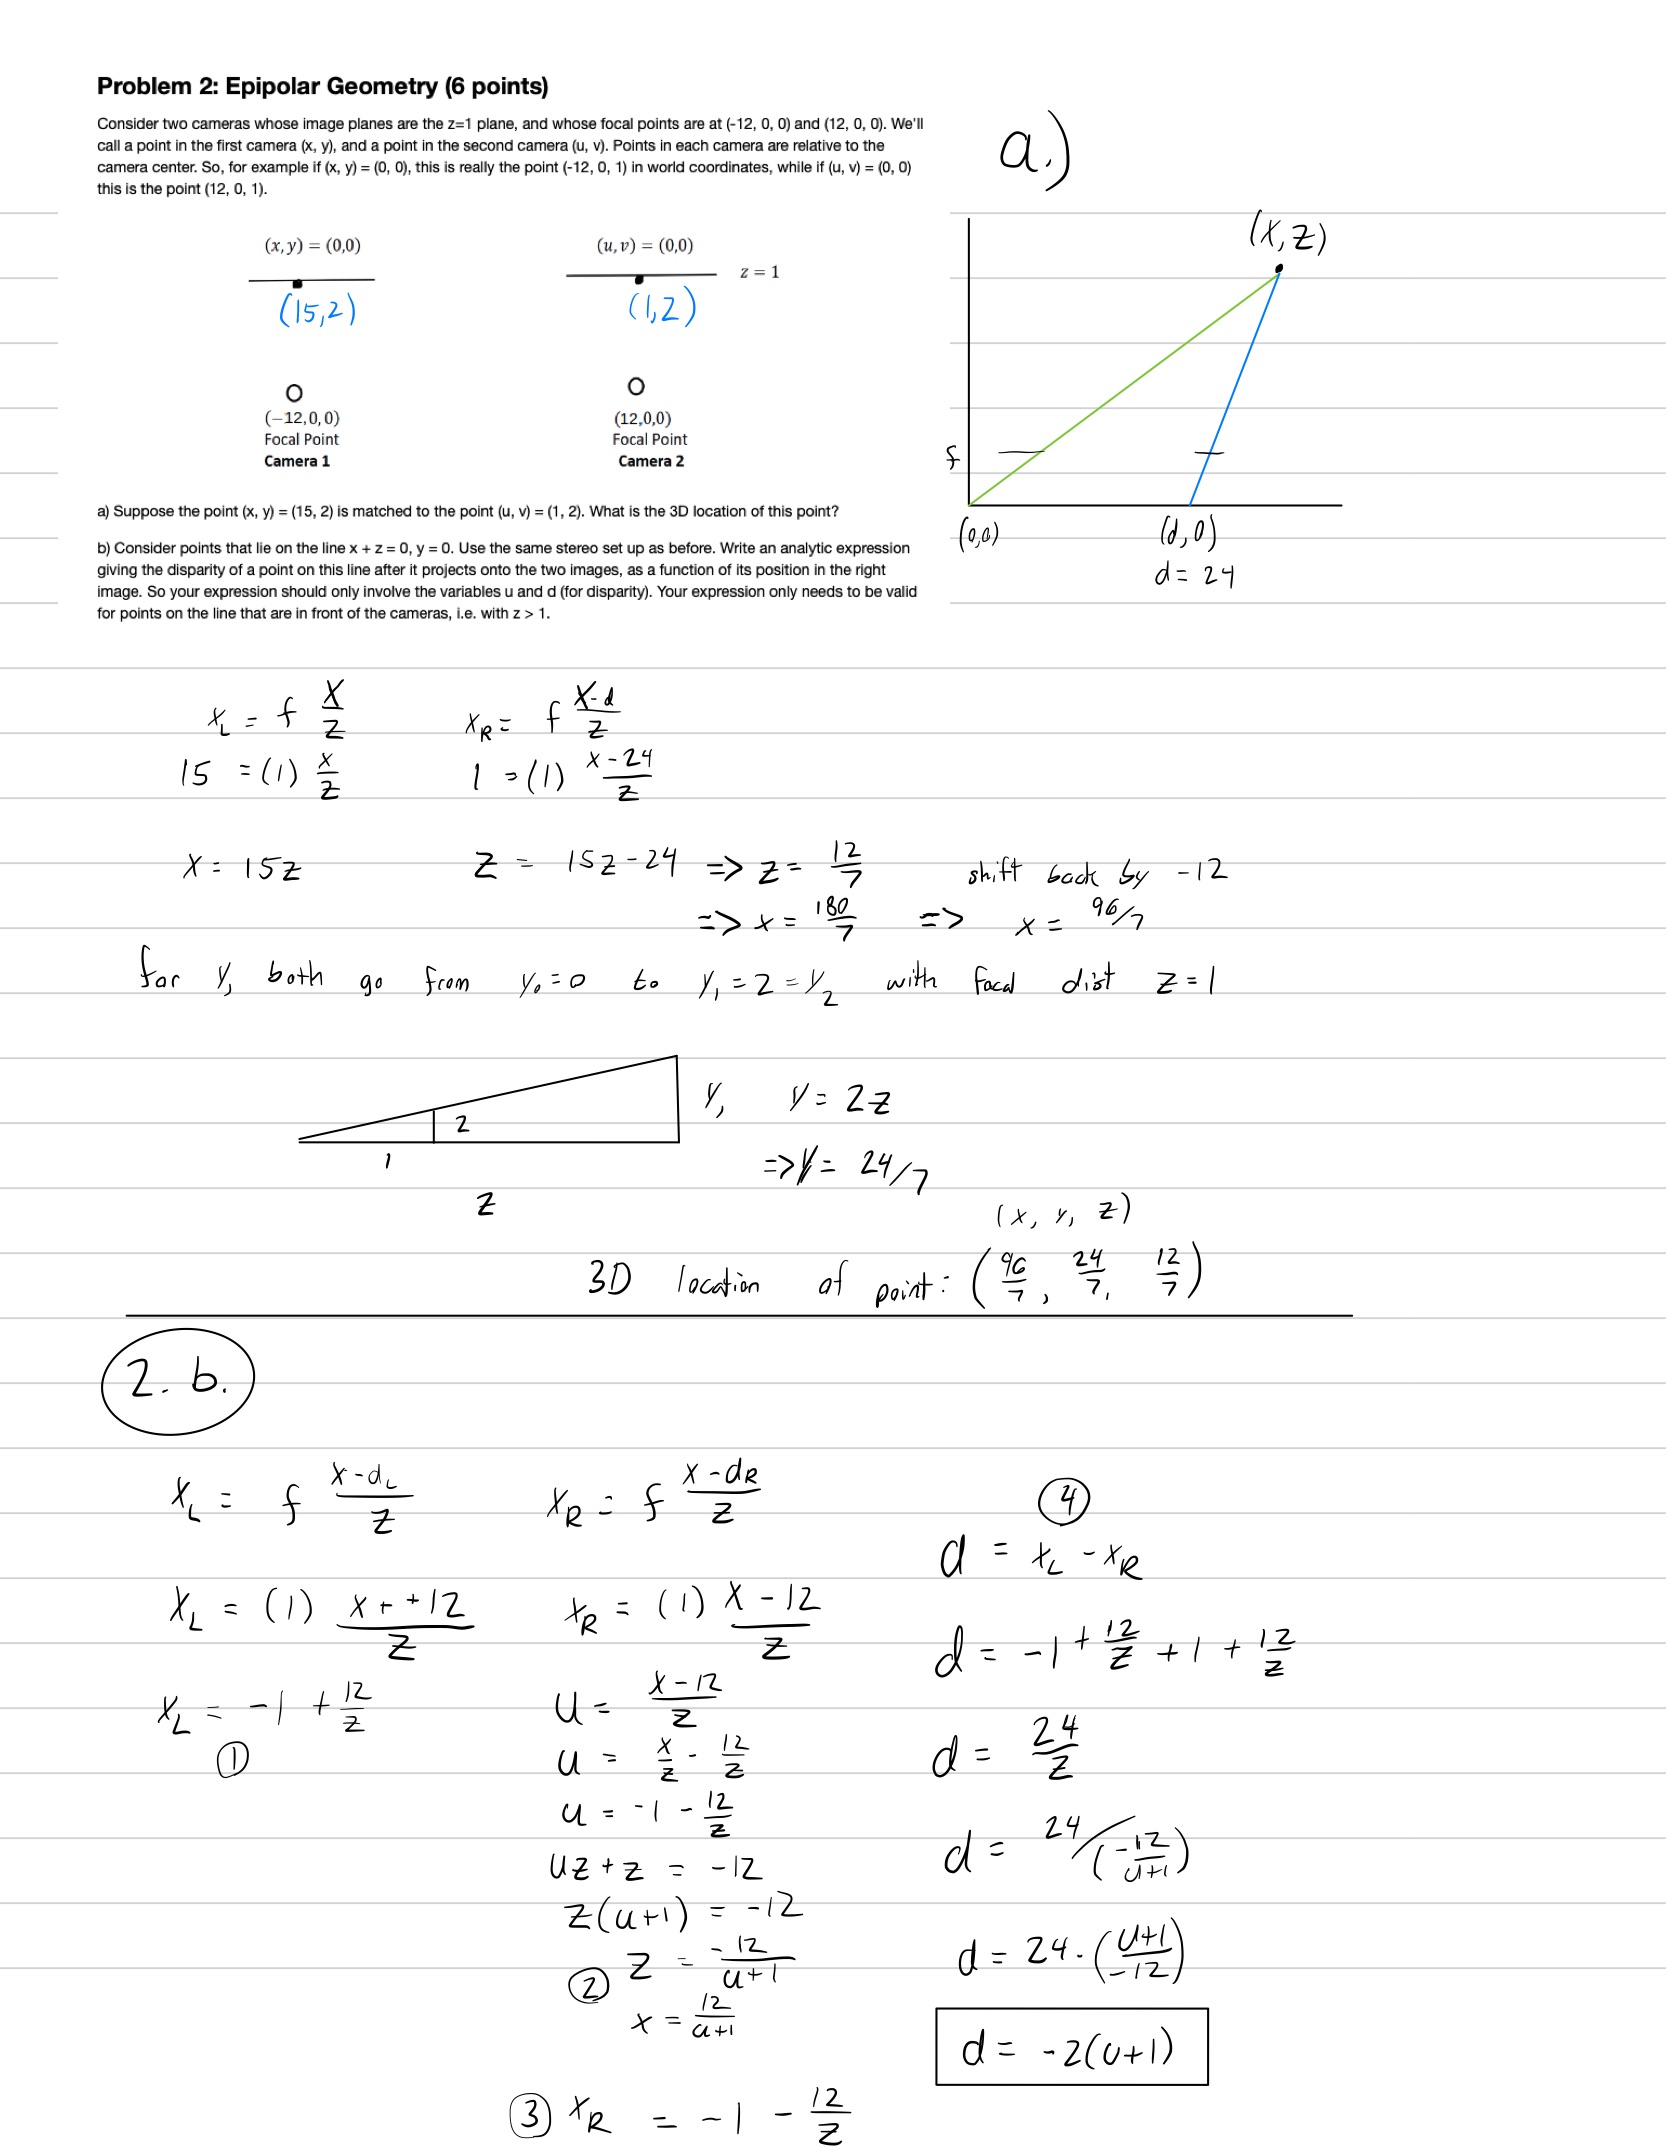 Problem 2: Epipolar Geometry (6 points)
Consider two cameras whose image planes are the z=1 plane, and whose focal points are at (-12, 0, 0) and (12, 0, 0). We'll
call a point in the first camera (x, y), and a point in the second camera (u, v). Points in each camera are relative to the
camera center. So, for example if (x, y) = (0, 0), this is really the point (-12, 0, 1) in world coordinates, while if (u, v) = (0, 0)
this is the point (12, 0, 1).
a.)
(x, y) = (0,0) (u, v) = (0,0)
z = 1
(15,2) (1,2)
(−12,0,0) (12,0,0)
Focal Point Focal Point
Camera 1 Camera 2
(X,Z)
f
(0,0) (d,0)
d = 24
a) Suppose the point (x, y) = (15, 2) is matched to the point (u, v) = (1, 2). What is the 3D location of this point?
b) Consider points that lie on the line x + z = 0, y = 0. Use the same stereo set up as before. Write an analytic expression
giving the disparity of a point on this line after it projects onto the two images, as a function of its position in the right
image. So your expression should only involve the variables u and d (for disparity). Your expression only needs to be valid
for points on the line that are in front of the cameras, i.e. with z > 1.
x_L = f X/Z x_R = f X-d/Z
15 = (1) x/z 1 = (1) x-24/z
x = 15z z = 15z - 24 => z = 12/7 shift back by -12
=> x = 180/7 => x = 96/7
for y, both go from y₀ = 0 to y₁ = 2 = y₂ with focal dist z = 1
2 y, y = 2z
1 => y = 24/7
z
(x, y, z)
3D location of point: (96/7, 24/7, 12/7)
2. b.
x_L = f x-d_L/z x_R = f x-d_R/z
x_L = (1) x+ +12/z x_R = (1) x-12/z
x_L = -1 + 12/z
①
u = x-12/z
u = x/z - 12/z
u = -1 - 12/z
uz + z = -12
z(u+1) = -12
② z = -12/u+1
x = 12/u+1
③ x_R = -1 - 12/z
④
d = x_L - x_R
d = -1 + 12/z + 1 + 12/z
d = 24/z
d = 24/(-12/u+1)
d = 24 · (u+1/-12)
d = -2(u+1)